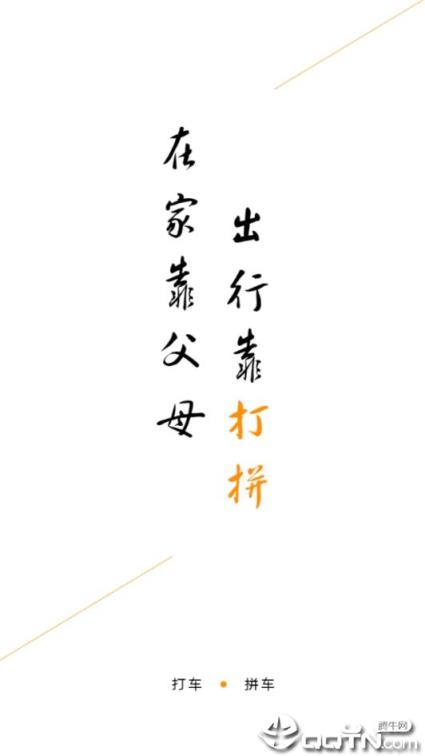 在家靠父母
出行靠打拼
打车 • 拼车
腾牛网
QQTN.com